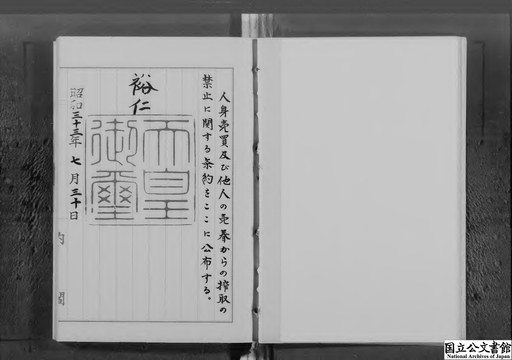 人身売買及び他人の売春からの搾取の
禁止に関する条約をここに公布する。
裕仁
天皇
御璽
昭和三十三年七月三十日
内閣
国立公文書館
National Archives of Japan